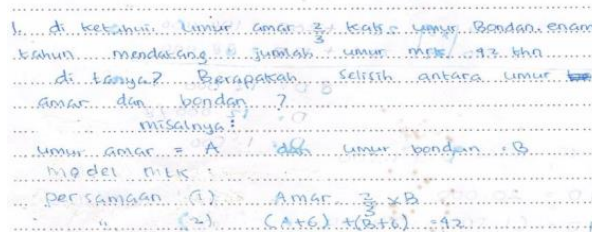 1. di ketahui. Umur amar 2/3 kali umur Bondan. enam
tahun mendatang jumlah umur mrk 42 thn
di tanya? Berapakah selisih antara umur
amar dan bondan ?
misalnya :
umur amar = A dan umur bondan = B
model mtk :
persamaan (1) Amar 2/3 x B
" (2) (A+6) + (B+6) = 42